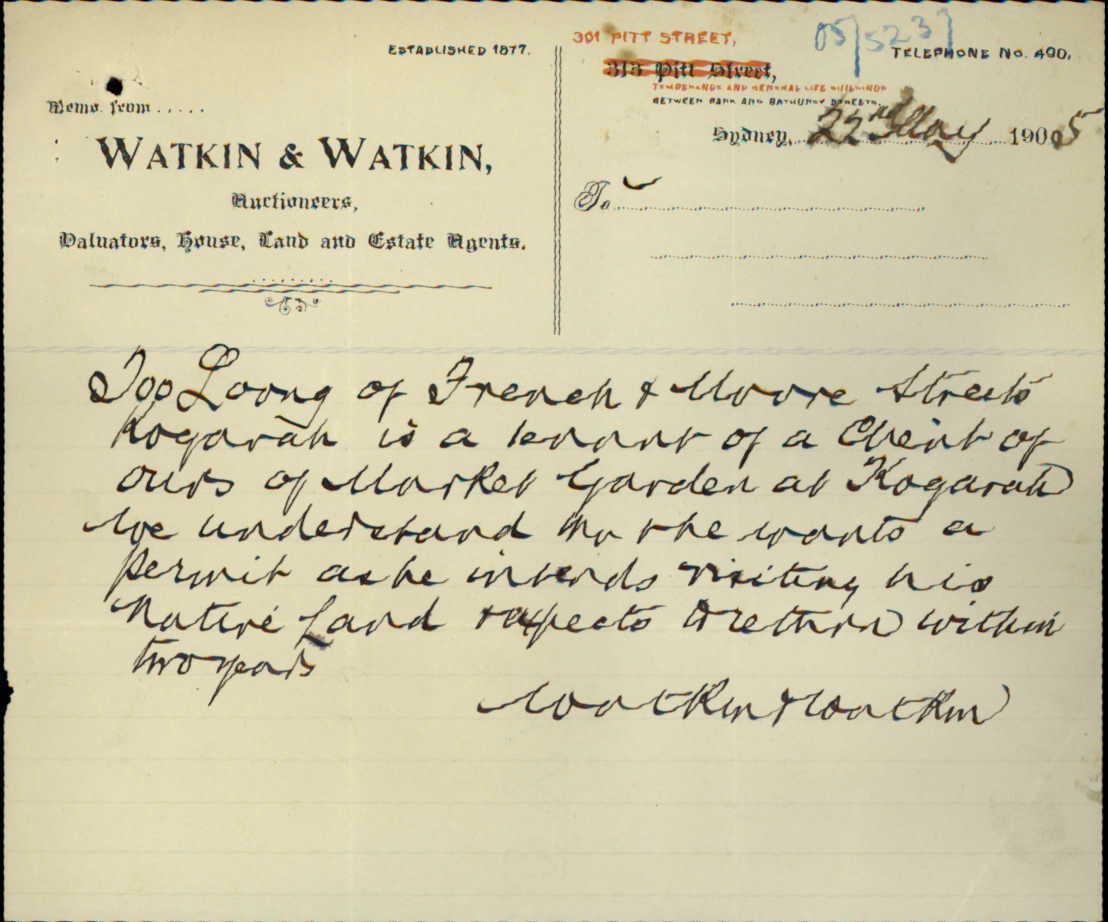 ESTABLISHED 1877.
301 PITT STREET,
05/5237
TELEPHONE NO. 490.
313 Pitt Street,
TEMPERANCE AND GENERAL LIFE BUILDINGS
BETWEEN PARK AND BATHURST STREETS.
Memo. from .....
Sydney, 22nd May 1905
WATKIN & WATKIN,
Auctioneers,
To
Valuators, House, Land and Estate Agents.
Loong of French & Moore Streets
Kogarah is a tenant of a Client of
ours of Market Garden at Kogarah
We understand he wants a
permit as he intends visiting his
Native Land & expects to return within
two years
Watkin & Watkin